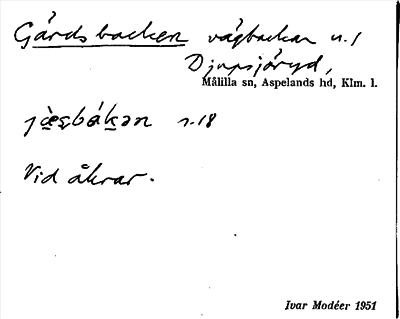 Gårdsbacken vägbackar n. 1
Djupsjöryd,
Målilla sn, Aspelands hd, Klm. l.
s. 18
Vid åkrar.
Ivar Modéer 1951